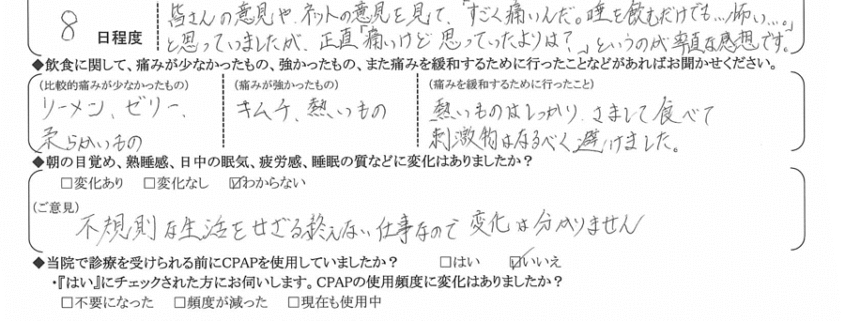 皆さんの意見や、ネットの意見を見て、「すごく痛いんだ。唾を飲むだけでも…怖い…。」
8 日程度 と思っていましたが、正直「痛いけど思っていたよりは？」というのが率直な感想です。
◆飲食に関して、痛みが少なかったもの、強かったもの、また痛みを緩和するために行ったことなどがあればお聞かせください。
(比較的痛みが少なかったもの) (痛みが強かったもの) (痛みを緩和するために行ったこと)
ラーメン、ゼリー、 キムチ、熱いもの 熱いものはしっかり、さまして食べて
柔らかいもの 刺激物はなるべく避けました。
◆朝の目覚め、熟睡感、日中の眠気、疲労感、睡眠の質などに変化はありましたか？
□変化あり □変化なし ☑わからない
(ご意見)
不規則な生活をせざる終えない仕事なので変化は分かりません
◆当院で診療を受けられる前にCPAPを使用していましたか？ □はい ☑いいえ
・『はい』にチェックされた方にお伺いします。CPAPの使用頻度に変化はありましたか？
□不要になった □頻度が減った □現在も使用中